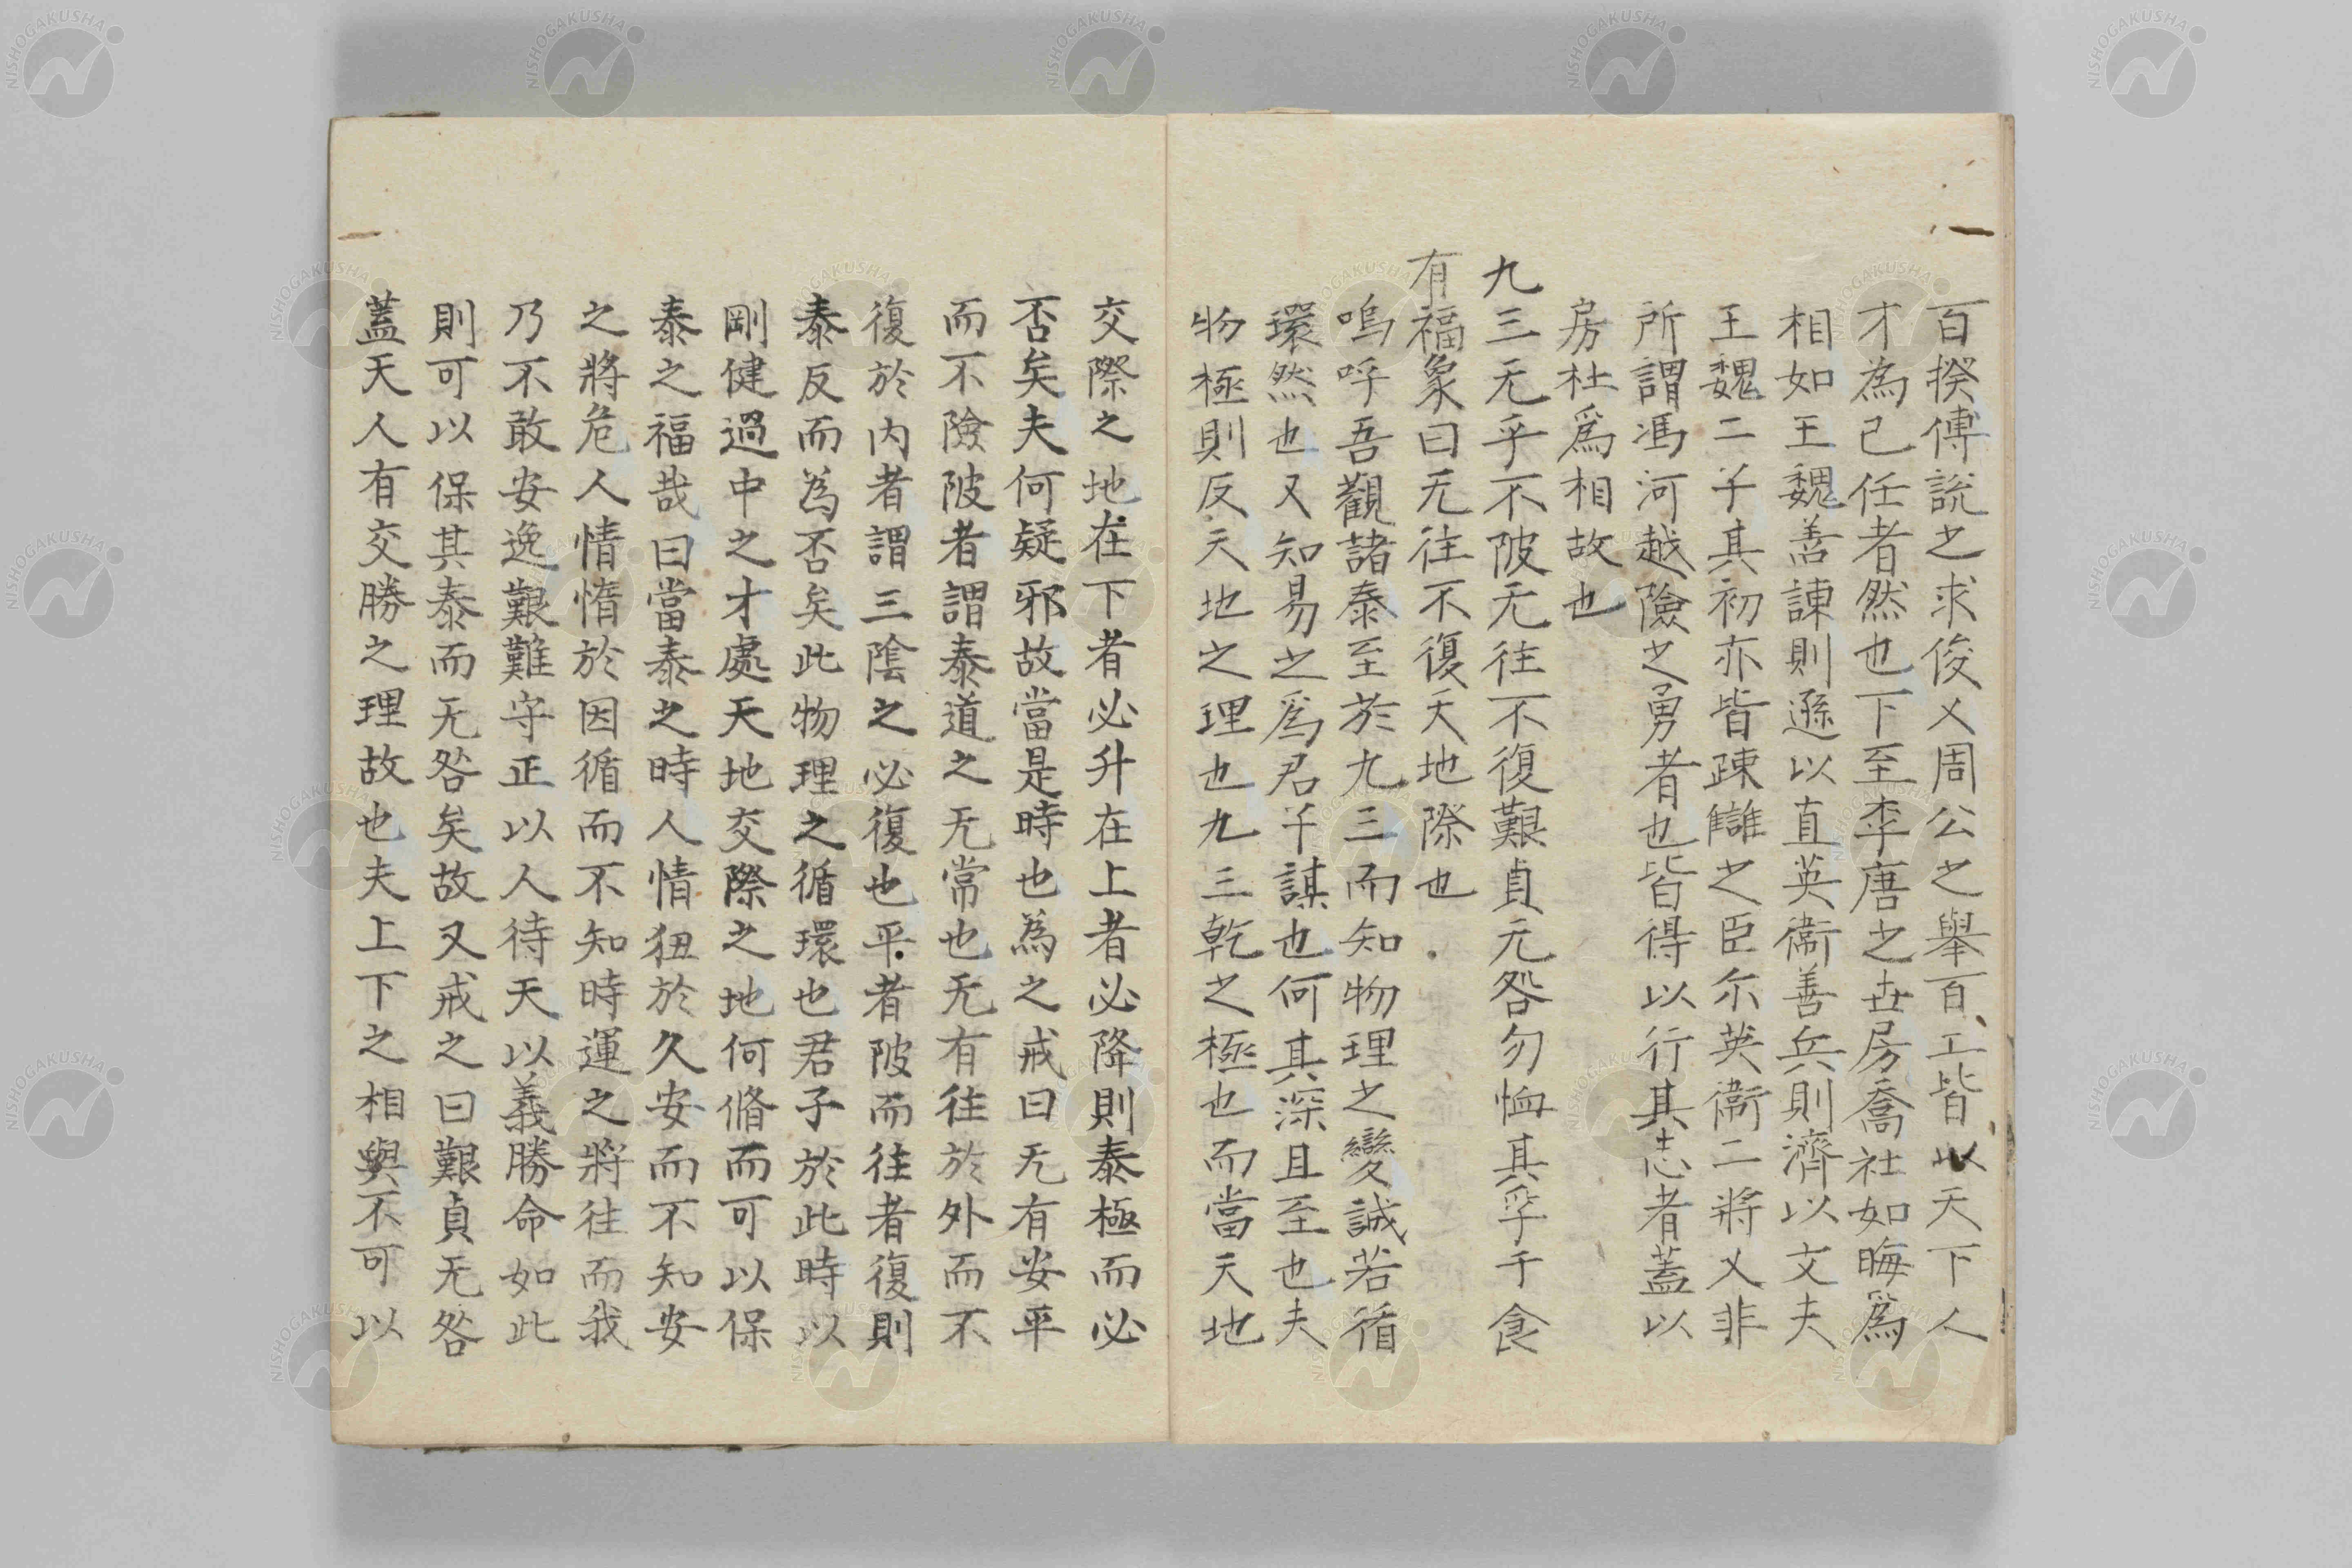 百揆傅説之求俊乂周公之舉百工皆以天下人
才為己任者然也下至李唐之世房喬社如晦爲
相如王魏善諫則遜以直英衞善兵則濟以文夫
王魏二子其初亦皆疎讎之臣尓英衞二將乂非
所謂馮河越險之勇者也皆得以行其志者蓋以
房杜爲相故也
九三无乎不陂无往不復艱貞元咎勿恤其孚于食
有福象曰无往不復天地際也
嗚呼吾觀諸泰至於九三而知物理之變誠若循
環然也又知易之爲君子謀也何其深且至也夫
物極則反天地之理也九三乾之極也而當天地
交際之地在下者必升在上者必降則泰極而必
否矣夫何疑邪故當是時也為之戒曰无有安平
而不險陂者謂泰道之无常也无有往於外而不
復於内者謂三陰之必復也平者陂而往者復則
泰反而為否矣此物理之循環也君子於此時以
剛健過中之才處天地交際之地何脩而可以保
泰之福哉曰當泰之時人情狃於久安而不知安
之將危人情惰於因循而不知時運之將往而我
乃不敢安逸艱難守正以人待天以義勝命如此
則可以保其泰而无咎矣故又戒之曰艱貞无咎
蓋天人有交勝之理故也夫上下之相與不可以
NISHOGAKUSHA